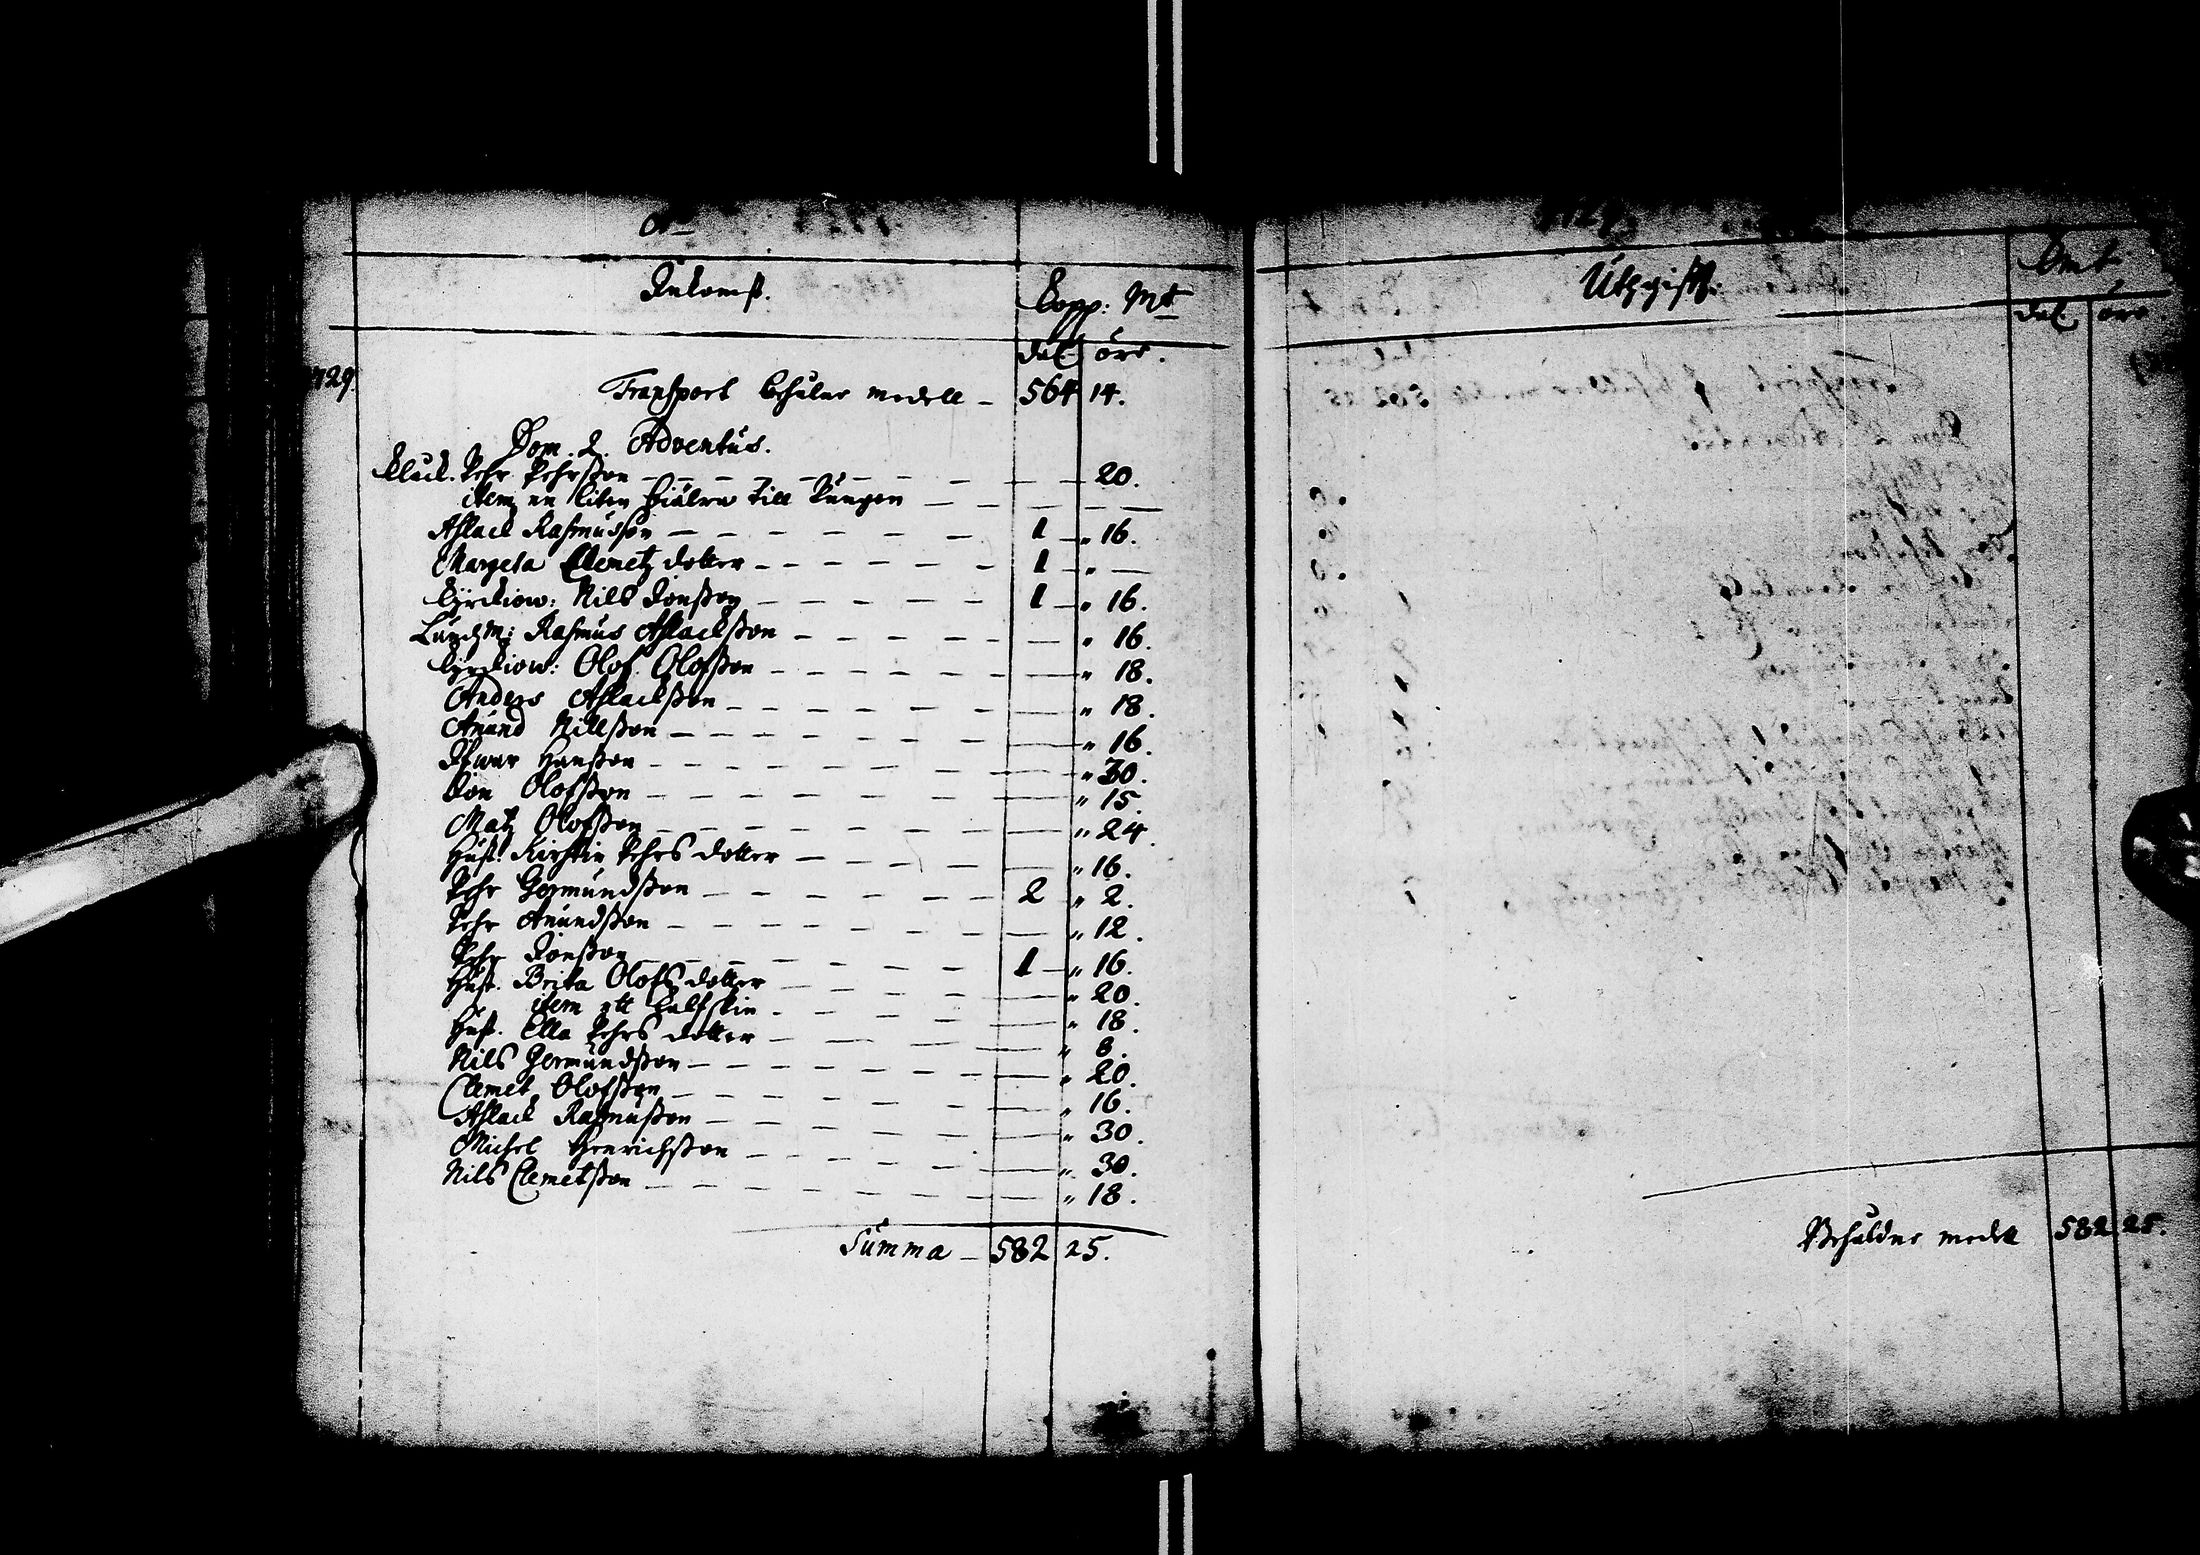 Ao
Inkomst.
Copp: Mt
dal: öre.
1729.
Transport behåldne medell – 564 14.
Dom. 2. Adventus.
Kluck. Pehr Pehrsson – 20.
item en liten till Pungen –
Aslack Rasmusson – 1 " 16.
Margeta Clemetz dotter – 1 " –
Kyrckiow: Nils Jonsson – 1 " 16.
Länsm: Rasmus Aslacksson – " 16.
Kyrckiow: Olof Olofsson – " 18.
Anders Aslacksson – " 18.
Anund Nillsson – " 16.
Ifwar Hansson – " 30.
Jon Olofsson – " 15.
Matz Olofsson – " 24.
Hust. Kirstin Pehrs dotter – " 16.
Pehr Germundsson – 2 " 2.
Pehr Anundsson – " 12.
Pehr Jonsson – 1 " 16.
Hust. Brita Olofs dotter – " 20.
item ett kalfskin – " 18.
Hust. Ella Pehrs dotter – " 8.
Nils Germundsson – " 20.
Clemet Olofsson – " 16.
Aslack Rasmusson – " 30.
Michel Henrichsson – " 30.
Nils Clemetsson – " 18.
Summa – 582 25.
1729
Uthgifft.
Kmt.
dal: öre
Behåldne medell 582 25.